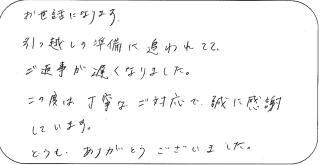 お世話になります.
引っ越しの準備に追われてて、
ご返事が遅くなりました。
この度は丁寧なご対応で、誠に感謝
しています。
どうも、ありがとうございました。